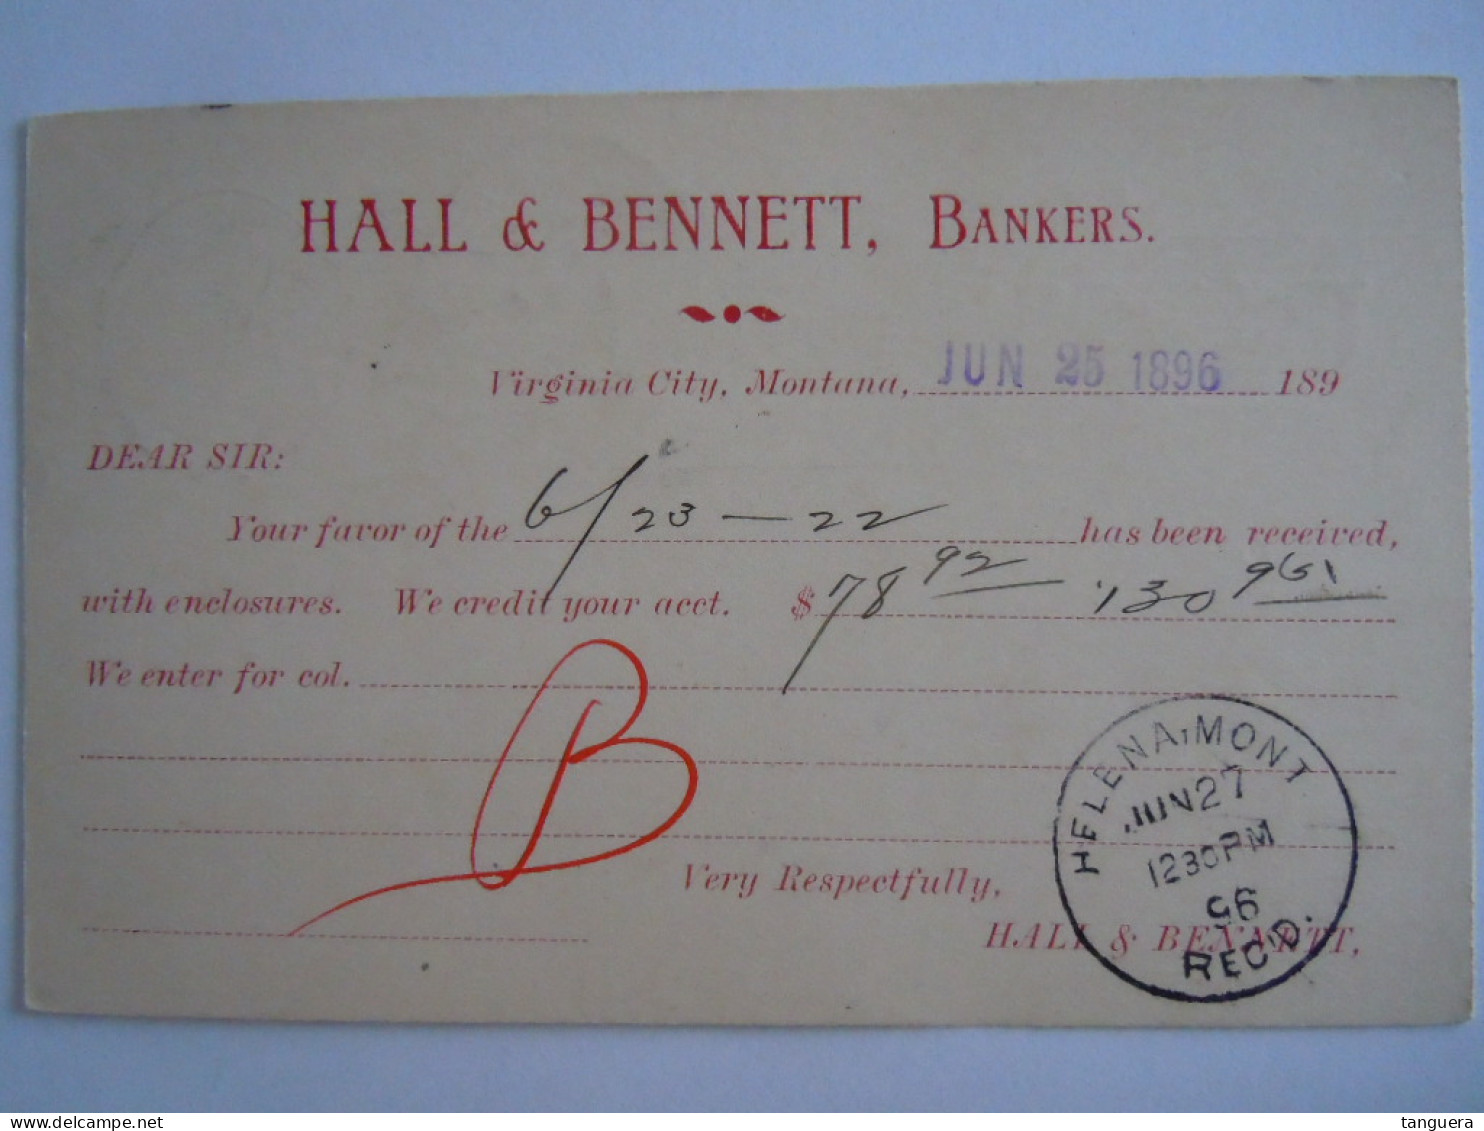 HALL & BENNETT, BANKERS.
Virginia City, Montana, JUN 25 1896 189
DEAR SIR:
Your favor of the 6/23 — 22 has been received,
with enclosures. We credit your acct. $ 78 92 130
We enter for col.
B
Very Respectfully,
HALL & BENNETT,
HELENA, MONT
JUN 27
12 30 PM
96
REC'D.
tanguera